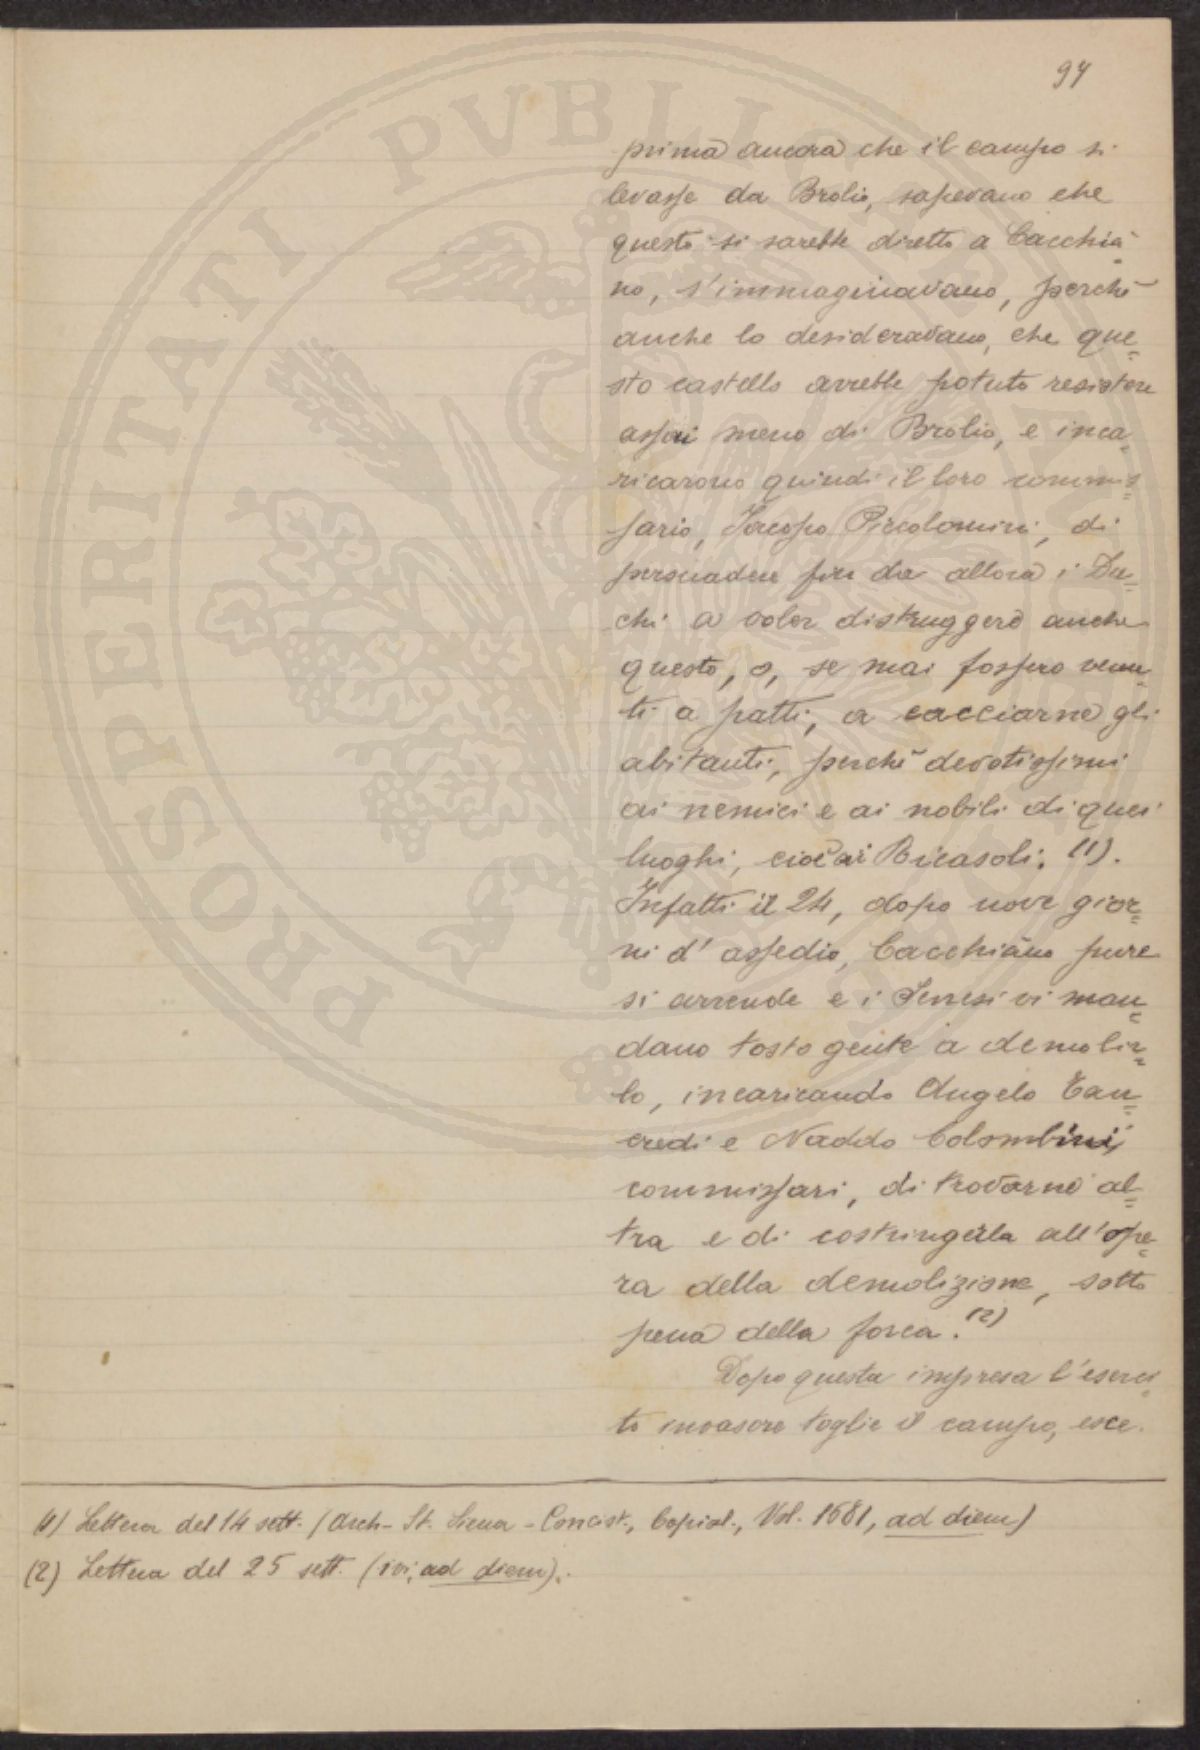 97
prima ancora che il campo si
levasse da Brolio, sapevano che
questo si sarebbe diretto a Cacchia-
no, s'immaginavano, perchè
anche lo desideravano, che que=
sto castello avrebbe potuto resistere
assai meno di Brolio, e inca=
ricarono quindi il loro commis=
sario, Jacopo Piccolomini, di
persuadere fin da allora i Du=
chi a voler distruggere anche
questo, o, se mai fossero venu=
ti a patti, a cacciarne gli
abitanti, perchè devotissimi
ai nemici e ai nobili di quei
luoghi, cioè ai Ricasoli. (1).
Infatti il 24, dopo nove gior=
ni d'assedio, Cacchiano pure
si arrende e i Senesi vi man=
dano tosto gente a demolir=
lo, incaricando Angelo Tan=
credi e Naddo Colombini,
commissari, di trovarne al=
tra e di costringerla all'ope=
ra della demolizione, sotto
pena della forca. (2)
Dopo questa impresa l'eserci=
to invasore toglie il campo, esce
(1) Lettera del 14 sett. (Arch- St. Siena - Concist., Copial., Vol. 1681, ad diem)
(2) Lettera del 25 sett. (ivi, ad diem).
PROSPERITATI PVBLICAE